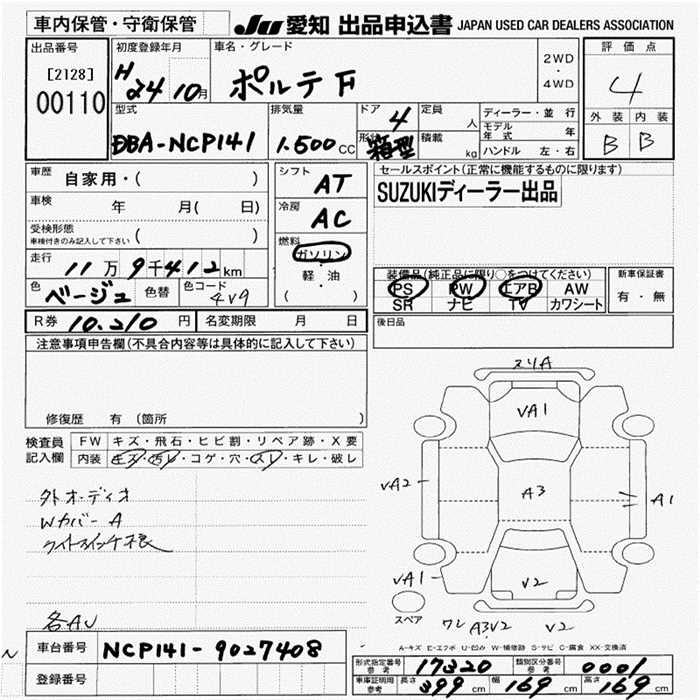 車内保管・守衛保管
JU 愛知 出品申込書 JAPAN USED CAR DEALERS ASSOCIATION
出品番号 [2128] 00110
初度登録年月 H24 10月
車名・グレード ポルテ F
2WD・4WD
評価点 4
外装 内装
B B
型式 DBA-NCP141
排気量 1.500cc
ドア 4
形状 箱型
定員 人
積載 kg
ディーラー・並行
モデル年式 年
ハンドル 左・右
車歴 自家用・( )
車検 年 月( 日)
受検形態 ( )
車検付きのみ記入して下さい
走行 11万9千412km
色 ベージュ 色替 色コード 4V9
シフト AT
冷房 AC
燃料 ガソリン
軽・油
( )
セールスポイント(正常に機能するものに限ります)
SUZUKIディーラー出品
装備品(純正品に限り○をつけてください)
PS PW エアB AW
SR ナビ TV カワシート
新車保証書
有・無
R券 10.210円 名変期限 月 日
後日品
注意事項申告欄(不具合内容等は具体的に記入して下さい)
修復歴 有 (箇所 )
検査員記入欄
FW キズ・飛石・ヒビ割・リペア跡・X要
内装 キズ・汚レ・コゲ・穴・スレ・キレ・破レ
外オーディオ
Wカバー A
ライトスイッチ根
各AU
スリA
VA1
VA2
A3
A1
VA1
V2
スペア
ワレ A3V2 V2
A-キズ E-エクボ U-凹み W-補修跡 S-サビ C-腐食 XX-交換済
車台番号 NCP141-9027408
登録番号
型式指定番号 参考 17320 類別区分番号 参考 0001
車庫証明用 参考 長さ 399cm 幅 169cm 高さ 169cm